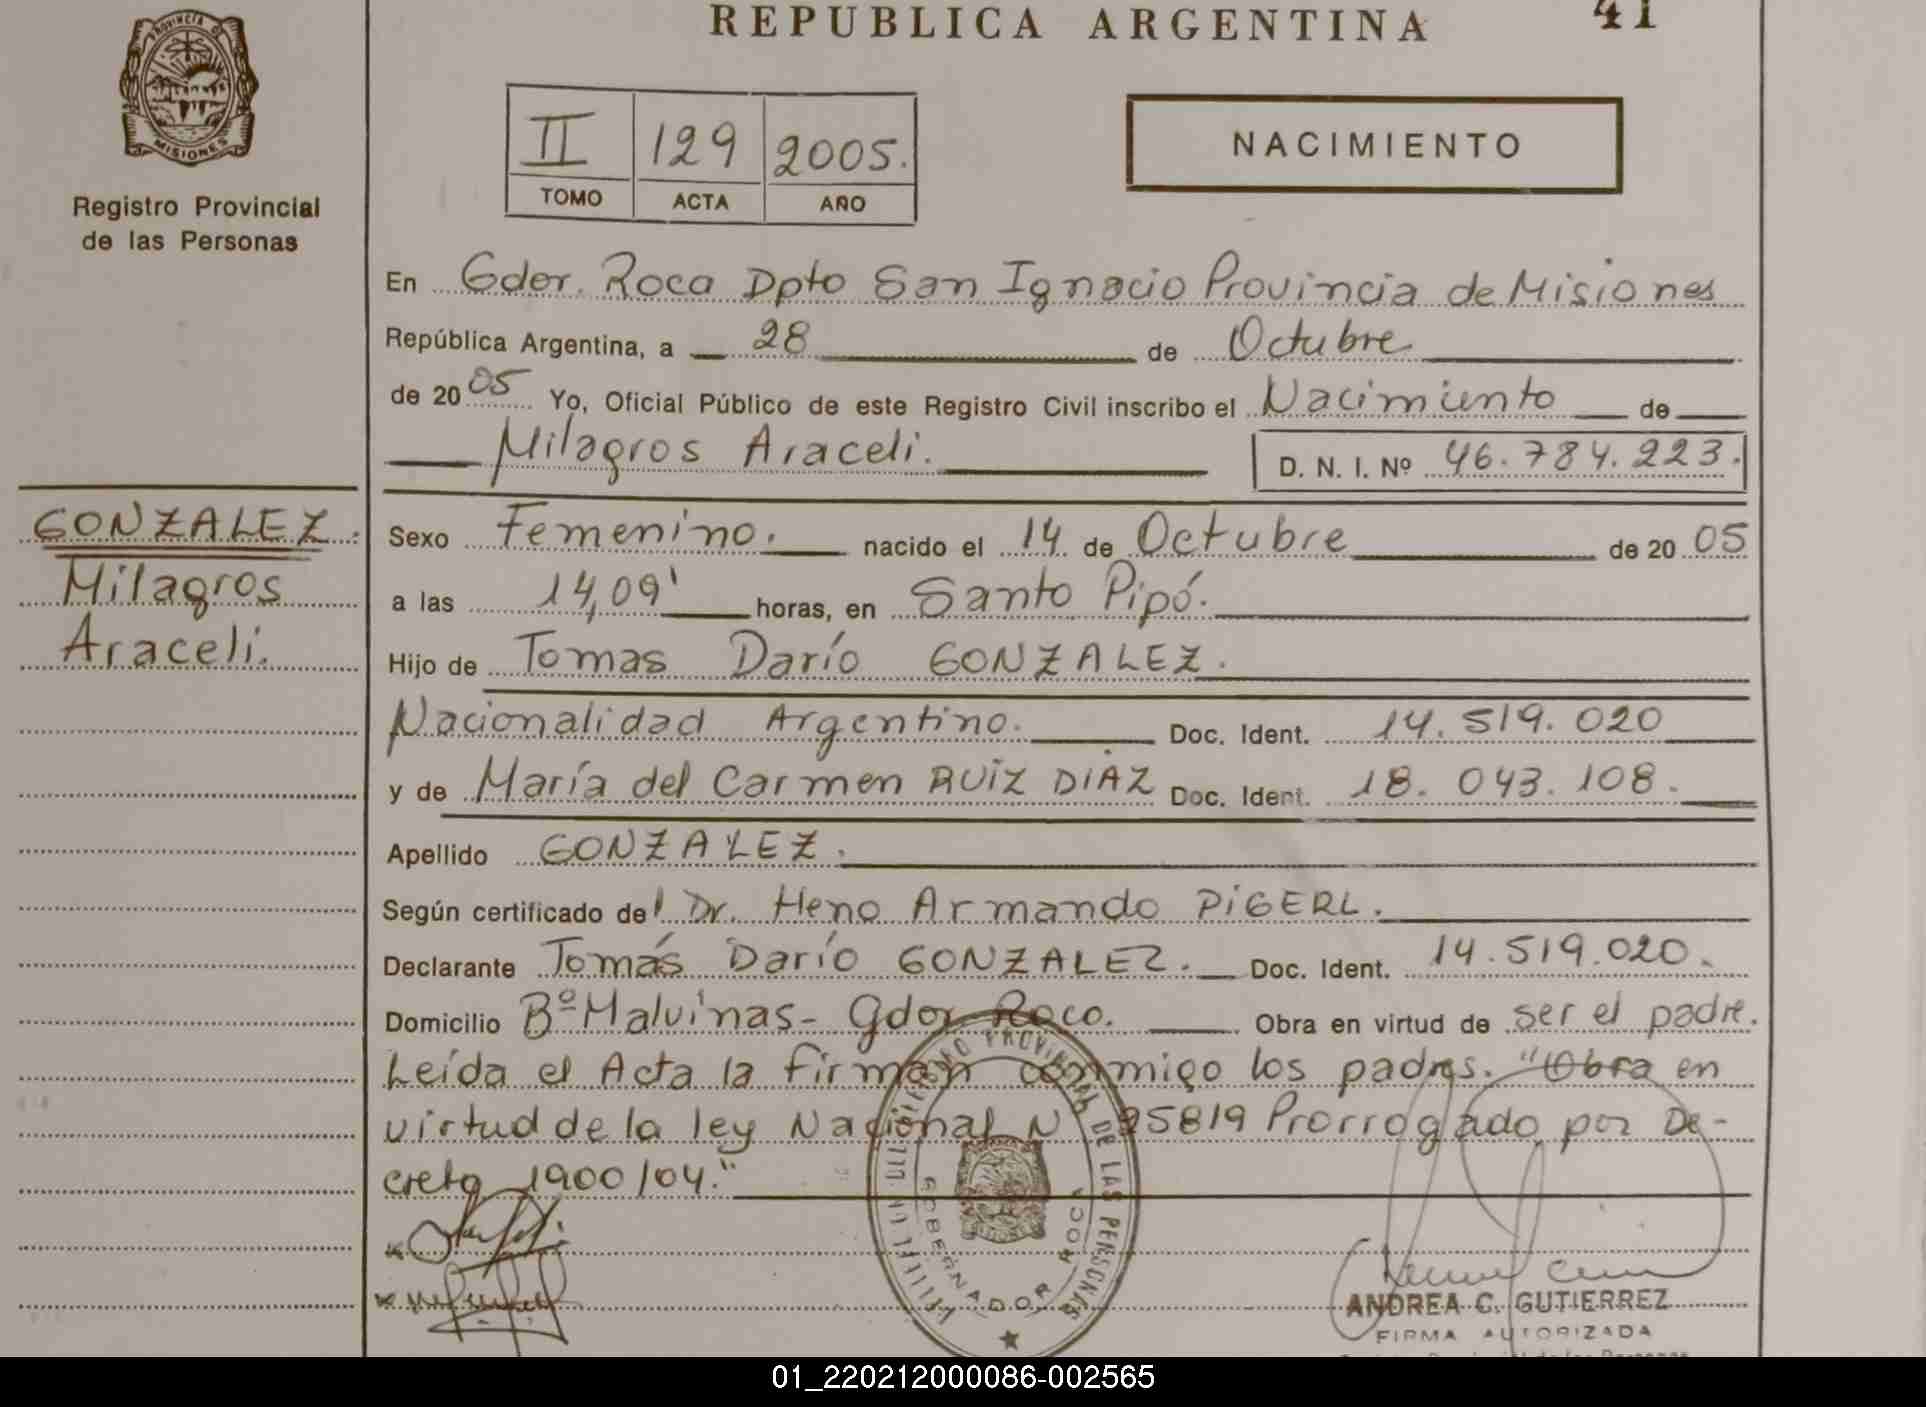 REPUBLICA ARGENTINA
41
PROVINCIA D
MISIONES
Registro Provincial
de las Personas
II 129 2005.
TOMO ACTA AÑO
NACIMIENTO
En Gdor. Roca Dpto San Ignacio Provincia de Misiones
República Argentina, a 28 de Octubre
de 2005 Yo, Oficial Público de este Registro Civil inscribo el Nacimiento de
Milagros Araceli.
D. N. I. Nº 46.784.223.
GONZALEZ.
Milagros
Araceli.
Sexo Femenino. nacido el 14 de Octubre de 2005
a las 14,09' horas, en Santo Pipó.
Hijo de Tomas Darío GONZALEZ.
Nacionalidad Argentino. Doc. Ident. 14.519.020
y de María del Carmen RUIZ DIAZ Doc. Ident. 18.043.108.
Apellido GONZALEZ.
Según certificado del Dr. Heno Armando PIGERL.
Declarante Tomás Darío GONZALEZ. Doc. Ident. 14.519.020.
Domicilio Bº Malvinas - Gdor Roca. Obra en virtud de ser el padre.
Leída el Acta la firman conmigo los padres. "Obra en
virtud de la ley Nacional N 25819 Prorrogado por De-
creto 1900/04."
PROVINCIAL DE LAS PERSONAS
GOBERNADOR ROCA
ANDREA C. GUTIERREZ
FIRMA AUTORIZADA
01_220212000086-002565